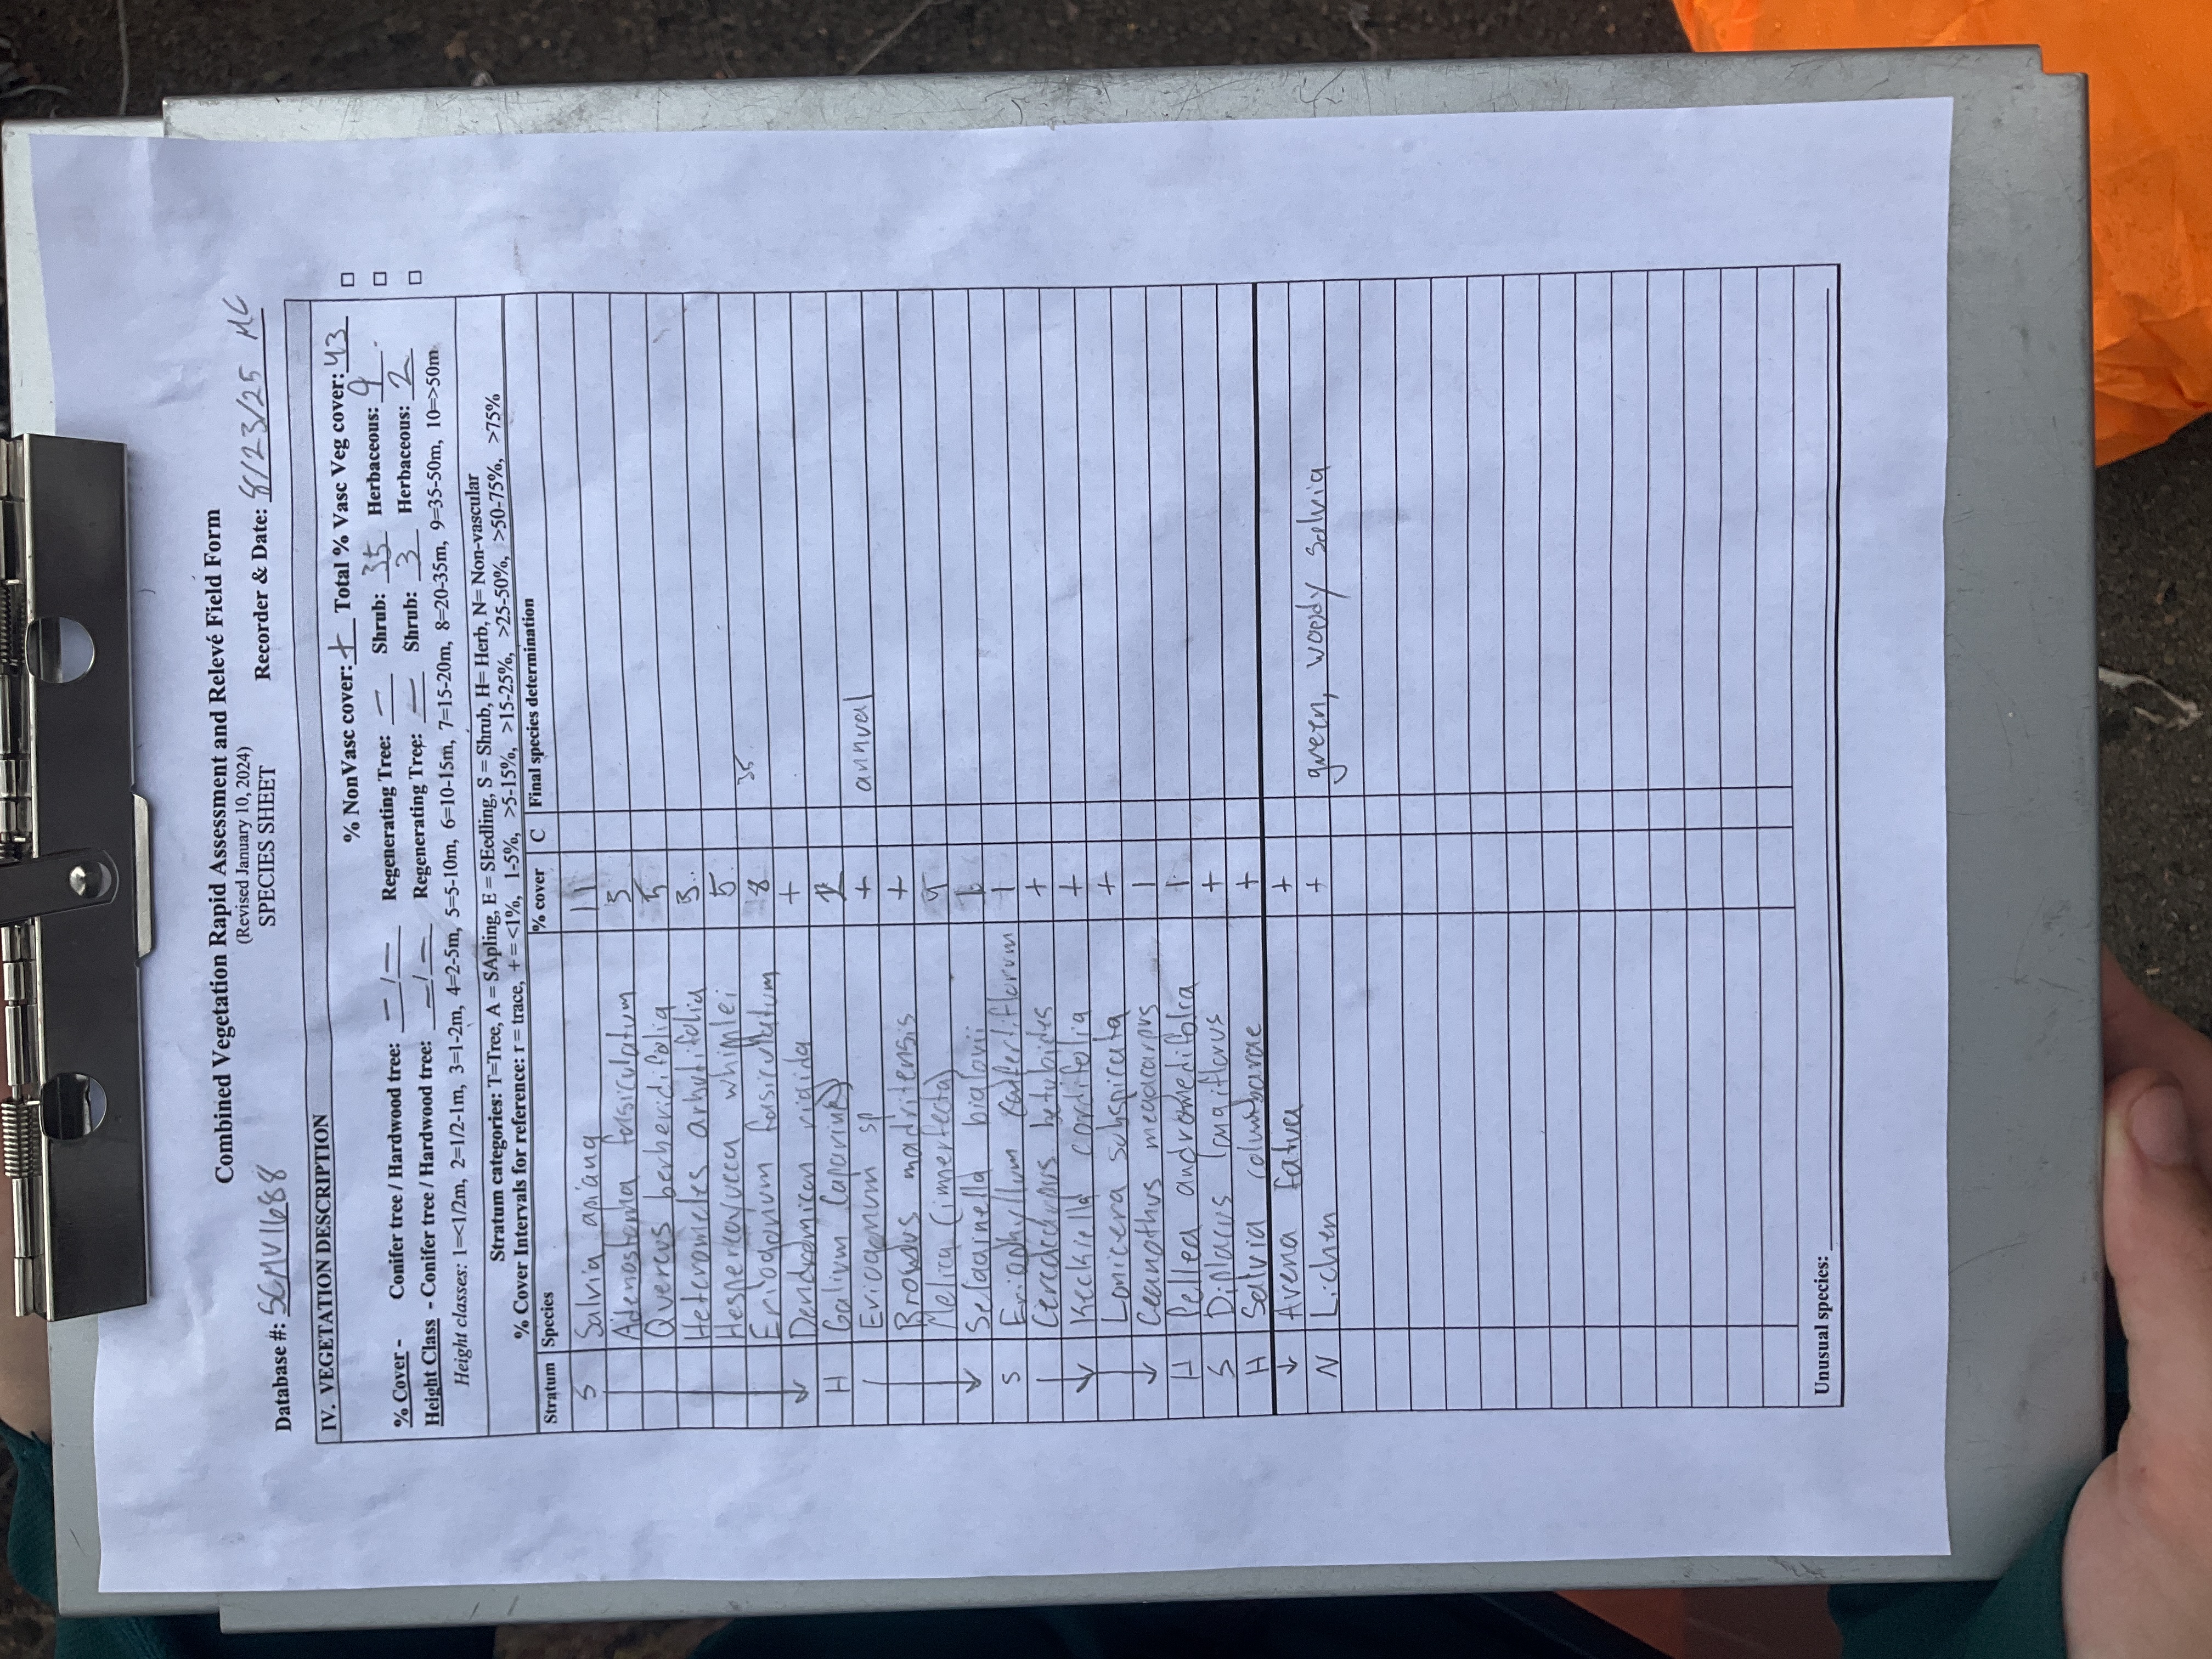 Combined Vegetation Rapid Assessment and Relevé Field Form
(Revised January 10, 2024)
SPECIES SHEET
Database #: SCMV1688 Recorder & Date: 8/23/25 MG
IV. VEGETATION DESCRIPTION
% NonVasc cover: + Total % Vasc Veg cover: 43 □
% Cover - Conifer tree / Hardwood tree: — / — Regenerating Tree: — Shrub: 35 Herbaceous: 9 □
Height Class - Conifer tree / Hardwood tree: — / — Regenerating Tree: — Shrub: 3 Herbaceous: 2 □
Height classes: 1=<1/2m, 2=1/2-1m, 3=1-2m, 4=2-5m, 5=5-10m, 6=10-15m, 7=15-20m, 8=20-35m, 9=35-50m, 10=>50m
Stratum categories: T=Tree, A = SApling, E = SEedling, S = Shrub, H= Herb, N= Non-vascular
% Cover Intervals for reference: r = trace, + = <1%, 1-5%, >5-15%, >15-25%, >25-50%, >50-75%, >75%
Stratum Species % cover C Final species determination
S Salvia apiana 11
Adenostoma fasiculatum 3
Quercus berberidifolia 5
Heteromeles arbutifolia 3
Hesperoyucca whipplei 5
Eriogonum fasiculatum 8 35
Dendromicon rigida +
H Galium (aparine)
Eriogonum sp + annual
Bromus madritensis +
Melica (imperfecta)
Selaginella bigelovii
S Eriophyllum confertiflorum 1
Cercocarpus betuloides +
Keckiella cordifolia +
Lonicera subspicata +
Ceanothus megacarpus 1
H Pellea andromedifolia 1
S Diplacus longiflorus +
H Salvia columbarae +
Avena fatua +
N Lichen + green, woody Salvia
Unusual species: